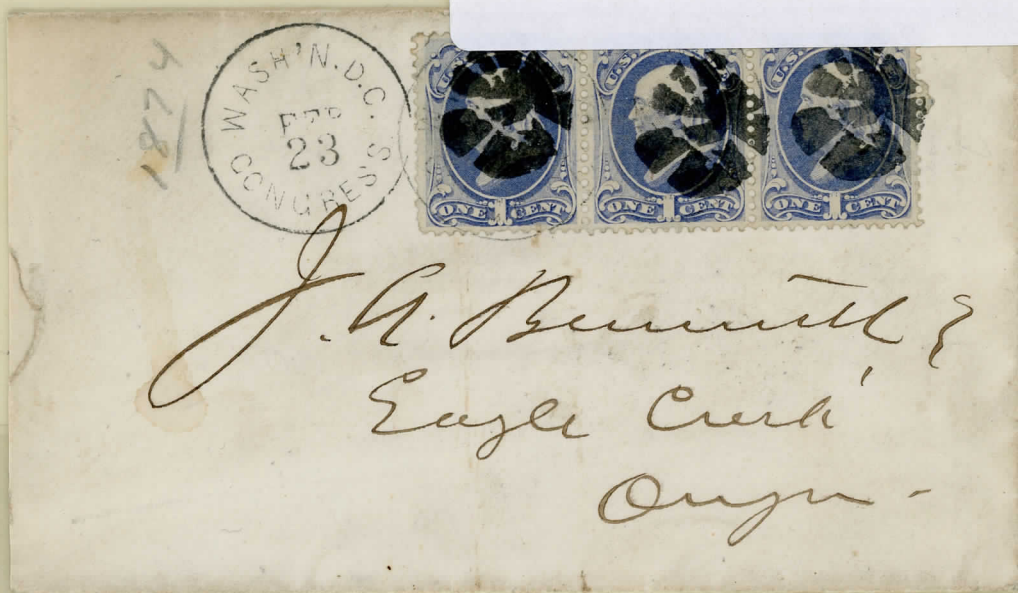 1874
WASH'N. D.C.
FEB
23
CONGRESS
U.S. U.S. U.S.
ONE 1 CENT ONE 1 CENT ONE 1 CENT
J. A. Bennett
Eagle Creek
Oregon -